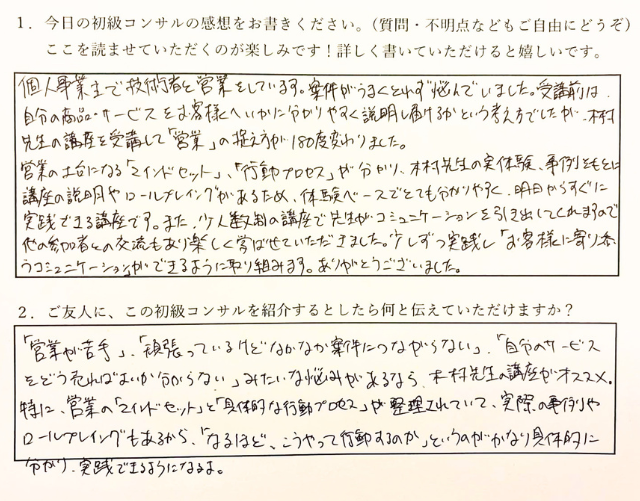 1．今日の初級コンサルの感想をお書きください。（質問・不明点などもご自由にどうぞ）
ここを読ませていただくのが楽しみです！詳しく書いていただけると嬉しいです。
個人事業主で技術者と営業をしています。案件がうまくとれず悩んでいました。受講前は、
自分の商品・サービスをお客様へいかに分かりやすく説明し届けるかという考え方でしたが、木村
先生の講座を受講して「営業」の捉え方が180度変わりました。
営業の土台になる「マインドセット」、「行動プロセス」が分かり、木村先生の実体験、事例をもとに
講座の説明やロールプレイングがあるため、体験ベースでとても分かりやすく、明日からすぐに
実践できる講座です。また、少人数制の講座で先生がコミュニケーションを引き出してくれますので
他の参加者との交流もあり楽しく学ばせていただきました。少しずつ実践し「お客様に寄り添
うコミュニケーション」ができるように取り組みます。ありがとうございました。
2．ご友人に、この初級コンサルを紹介するとしたら何と伝えていただけますか？
「営業が苦手」、「頑張っているけどなかなか案件につながらない」、「自分のサービス
をどう売ればよいか分からない」みたいな悩みがあるなら、木村先生の講座がオススメ。
特に、営業の「マインドセット」と「具体的な行動プロセス」が整理されていて、実際の事例や
ロールプレイングもあるから、「なるほど、こうやって行動するのか」というのがかなり具体的に
分かり、実践できるようになるよ。